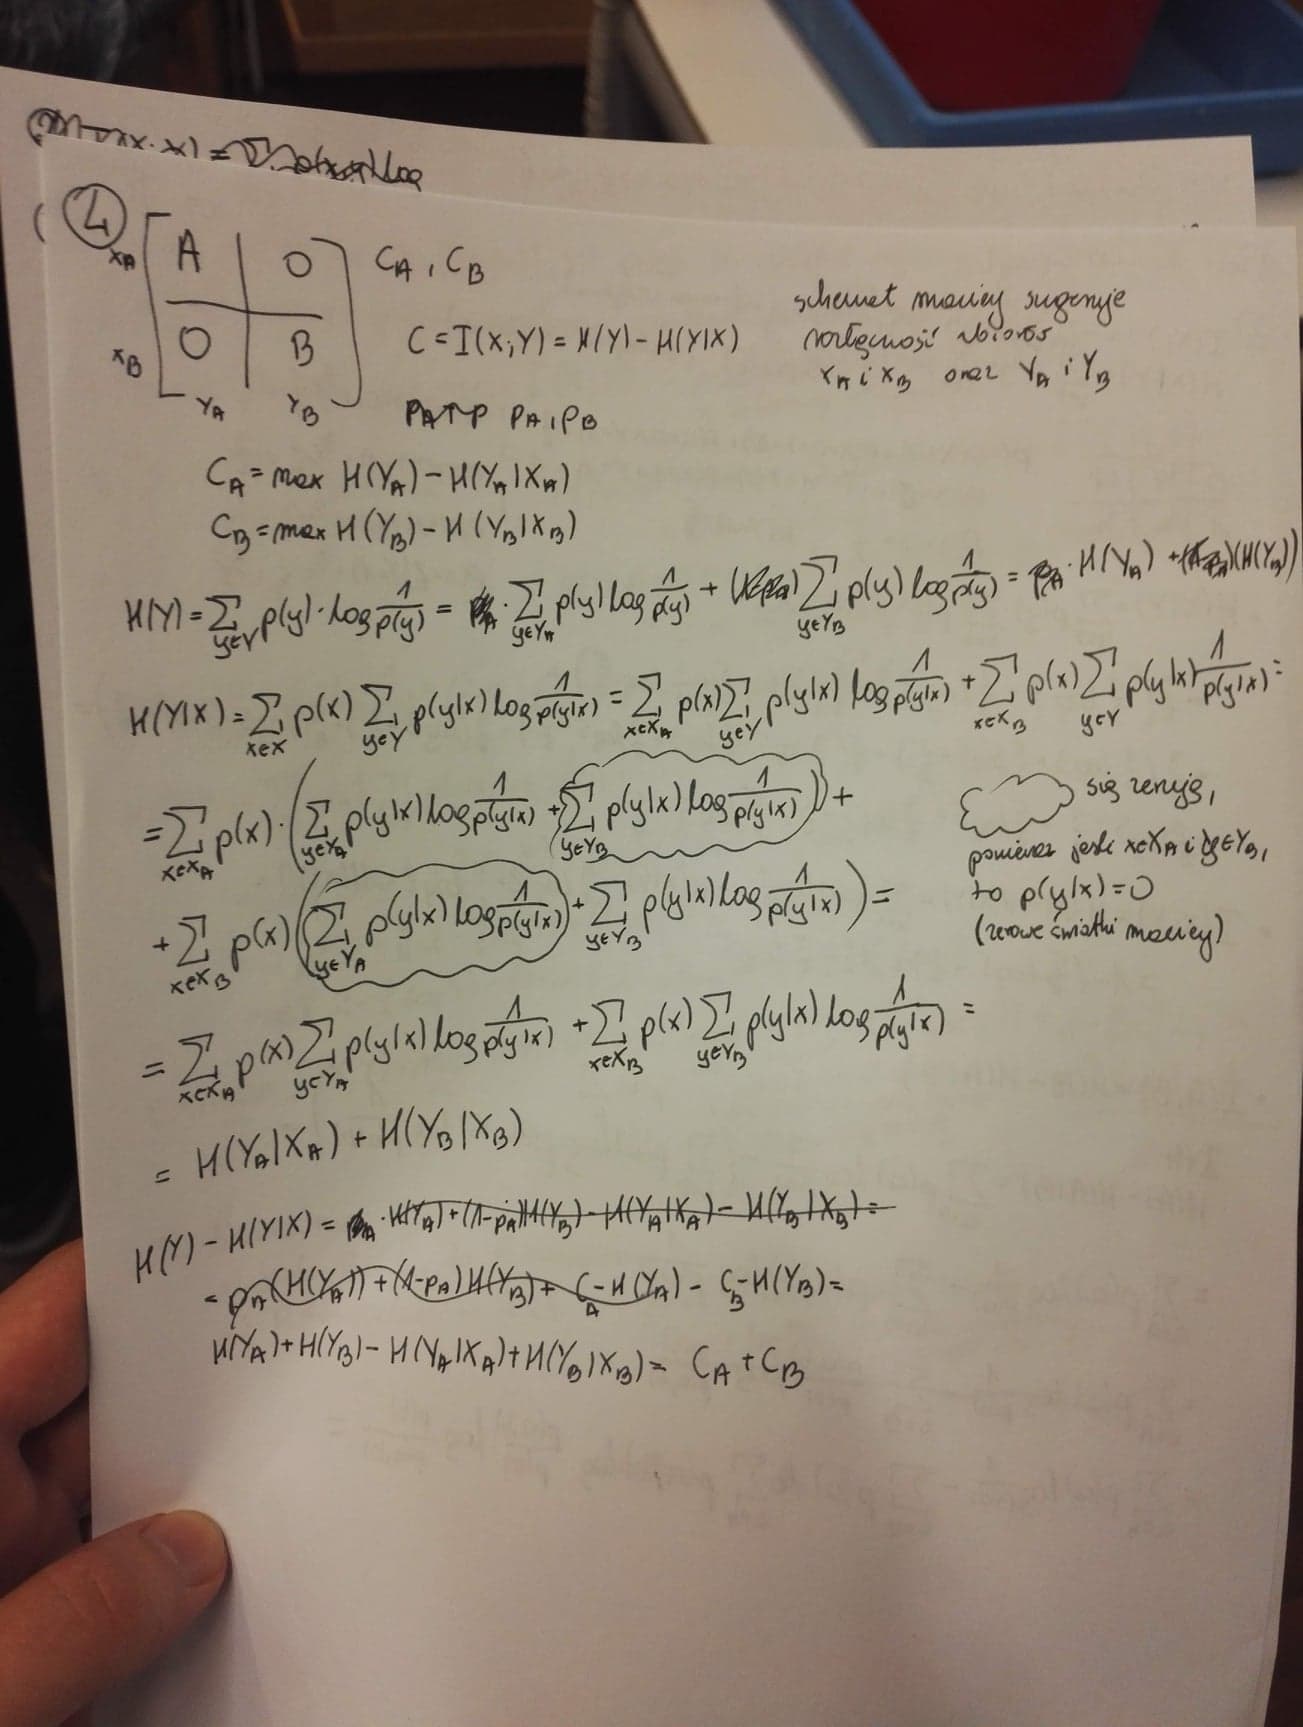 ④
x_A [ A | 0 ] C_A, C_B
x_B [ 0 | B ]
Y_A Y_B
C = I(X;Y) = H(Y) - H(Y|X)
schemat macierzy sugeruje
rozłączność zbiorów
x_A i x_B oraz Y_A i Y_B
p_A, p_B
C_A = max H(Y_A) - H(Y_A|X_A)
C_B = max H(Y_B) - H(Y_B|X_B)
H(Y) = Σ_{y∈Y} p(y) · log 1/p(y) = · Σ_{y∈Y_A} p(y) log 1/p(y) + Σ_{y∈Y_B} p(y) log 1/p(y) = · H(Y_A) + (H(Y_B))
H(Y|X) = Σ_{x∈X} p(x) Σ_{y∈Y} p(y|x) log 1/p(y|x) = Σ_{x∈X_A} p(x) Σ_{y∈Y} p(y|x) log 1/p(y|x) + Σ_{x∈X_B} p(x) Σ_{y∈Y} p(y|x) 1/p(y|x) =
= Σ_{x∈X_A} p(x) · ( Σ_{y∈Y_A} p(y|x) log 1/p(y|x) + Σ_{y∈Y_B} p(y|x) log 1/p(y|x) ) +
+ Σ_{x∈X_B} p(x) ( Σ_{y∈Y_A} p(y|x) log 1/p(y|x) + Σ_{y∈Y_B} p(y|x) log 1/p(y|x) ) =
się zerują,
ponieważ jeśli x∈X_A i y∈Y_B,
to p(y|x) = 0
(zerowe ćwiartki macierzy)
= Σ_{x∈X_A} p(x) Σ_{y∈Y_A} p(y|x) log 1/p(y|x) + Σ_{x∈X_B} p(x) Σ_{y∈Y_B} p(y|x) log 1/p(y|x) =
= H(Y_A|X_A) + H(Y_B|X_B)
H(Y) - H(Y|X) = p_A · H(Y_A) + (1-p_A)H(Y_B) - H(Y_A|X_A) - H(Y_B|X_B) =
= p_A (H(Y_A)) + (1-p_A) H(Y_B) + C_A - H(Y_A) - C_B - H(Y_B) =
H(Y_A) + H(Y_B) - H(Y_A|X_A) + H(Y_B|X_B) = C_A + C_B